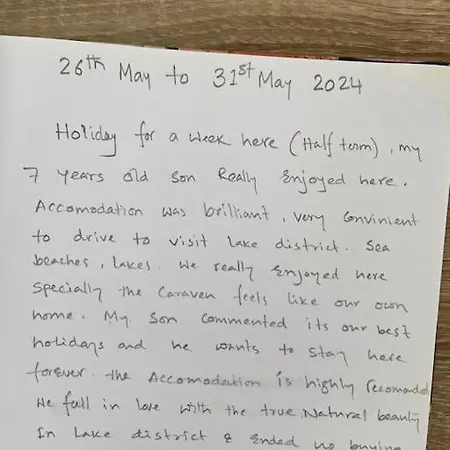 26th May to 31st May 2024
Holiday for a week here (Half term), my
7 years old son Really Enjoyed here.
Accomodation was brilliant, very Convinient
to drive to visit Lake district. Sea
beaches, Lakes. We really Enjoyed here
Specially the Caraven feels like our own
home. My Son Commented its our best
holidays and he wants to stay here
forever. the Accomodation is highly recomonded
We fall in love with the true Natural beauty
In Lake district & Ended up buying